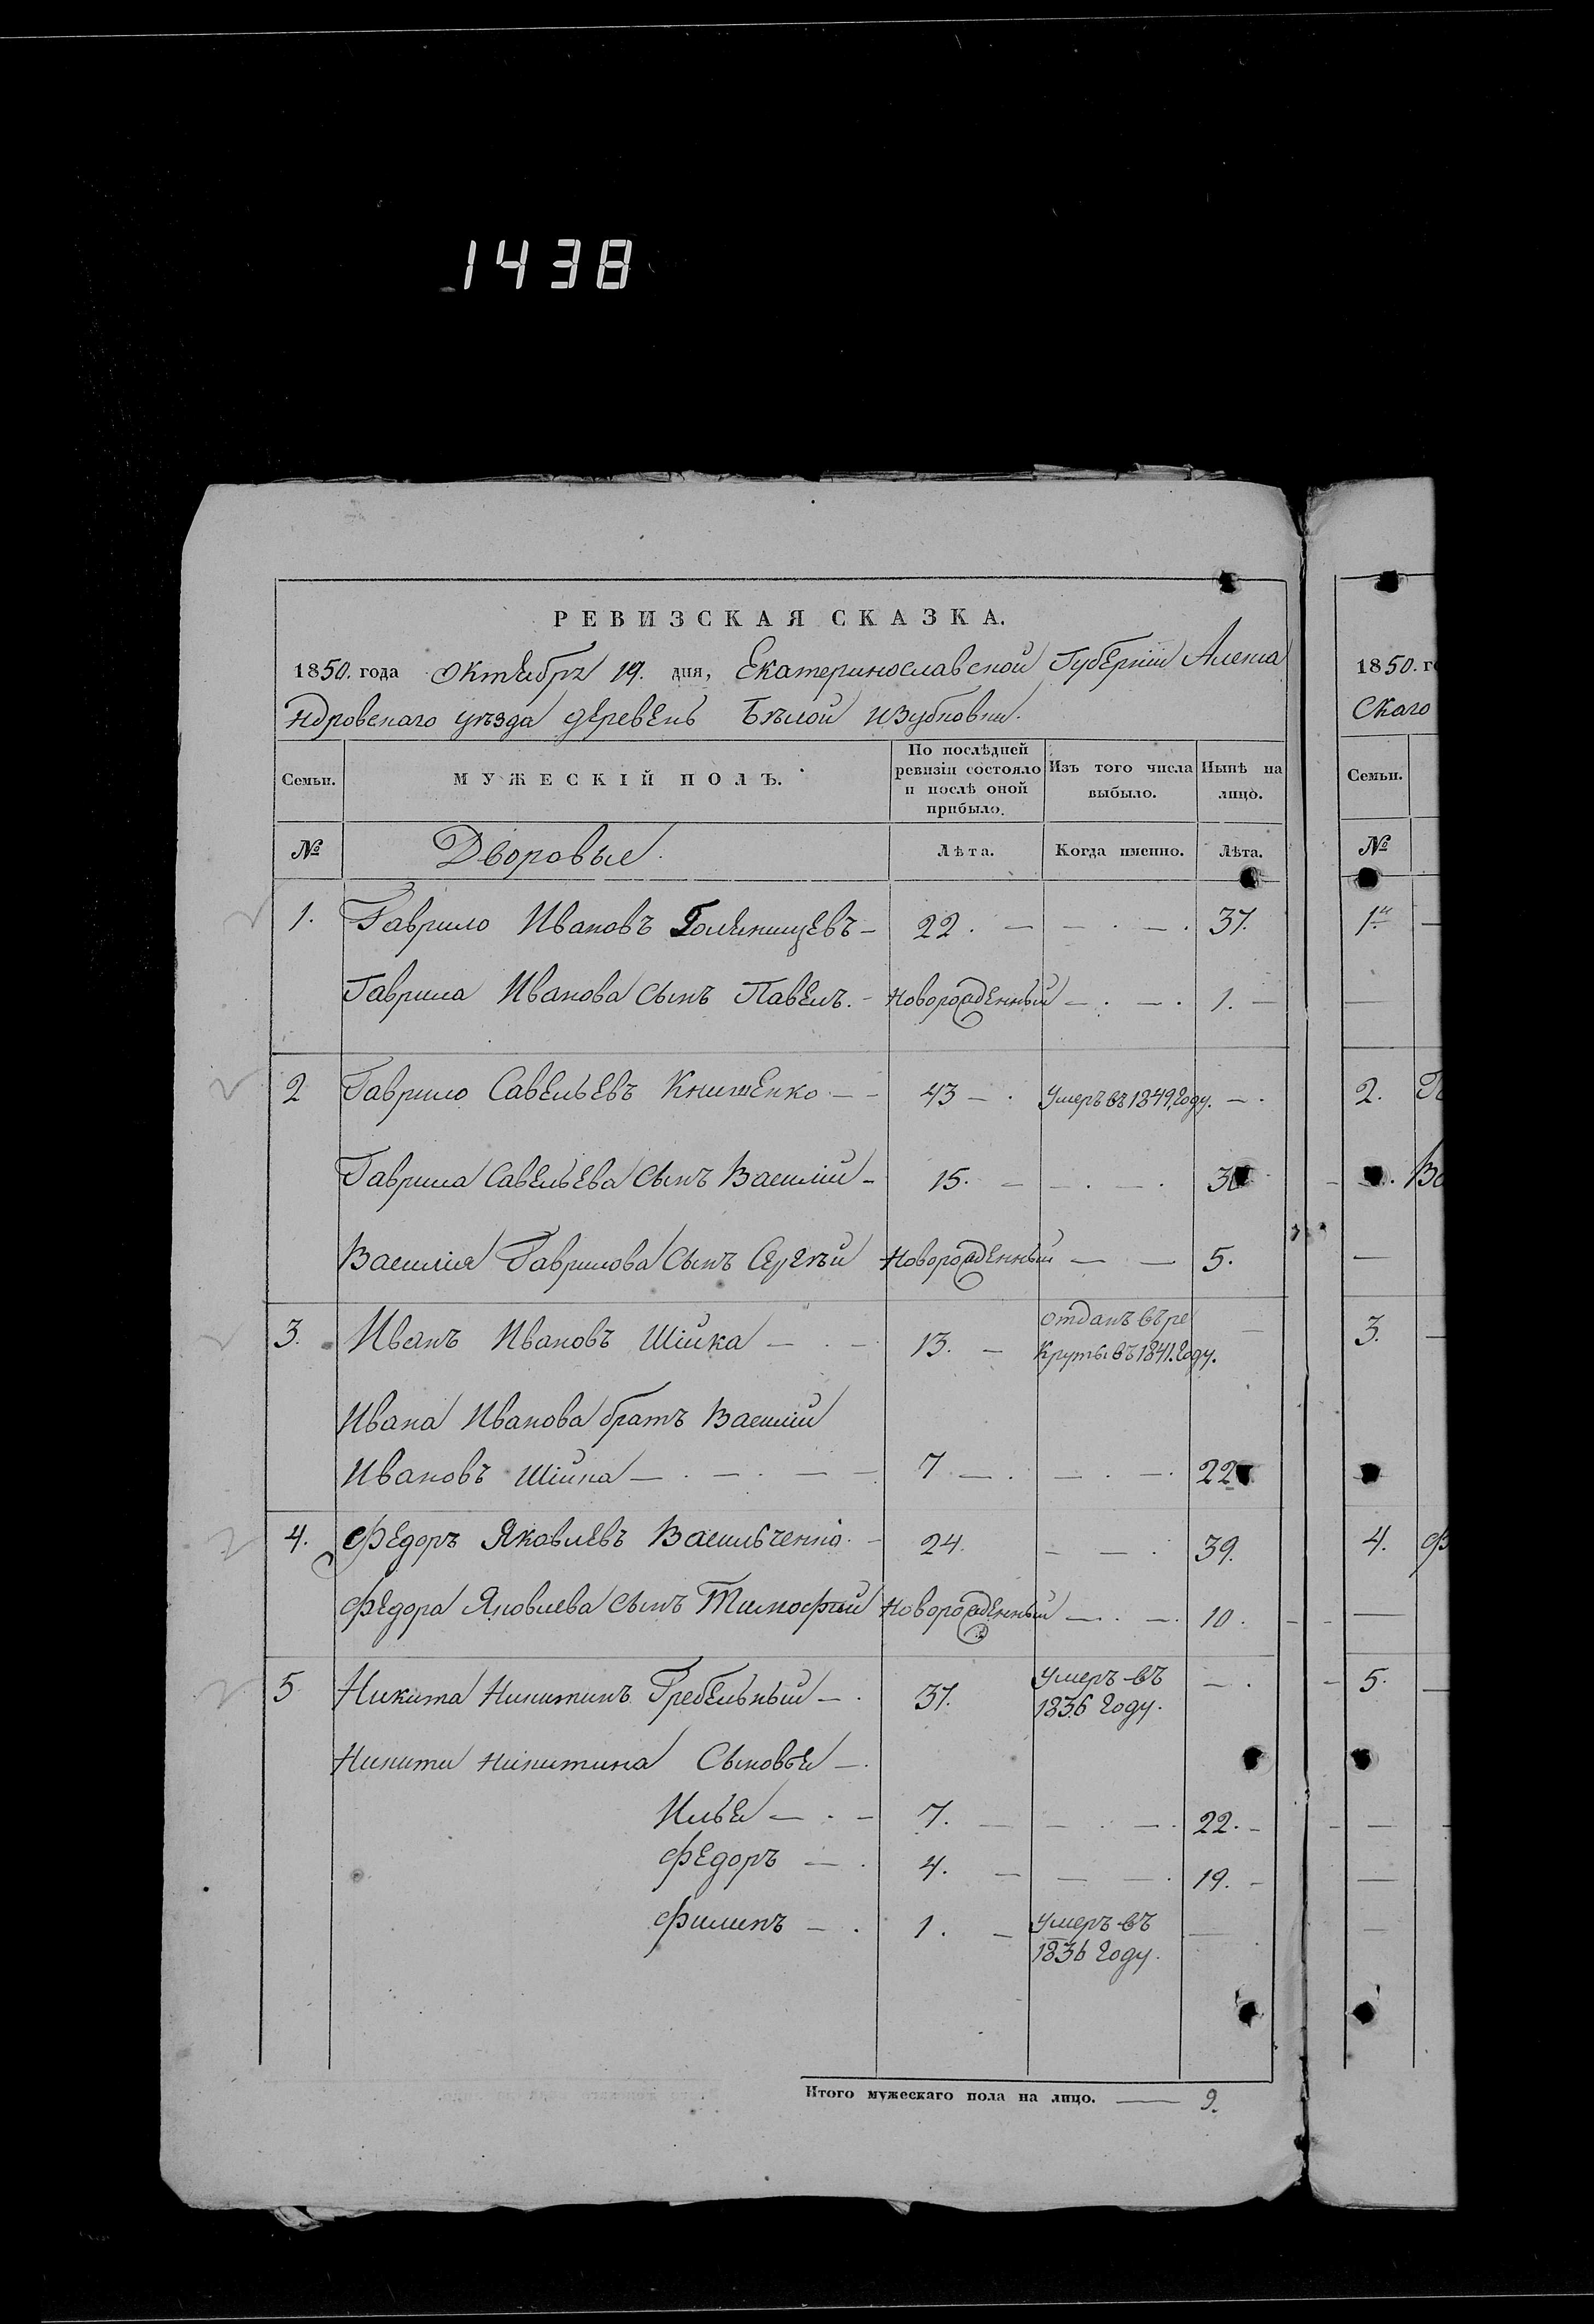 1438
РЕВИЗСКАЯ СКАЗКА.
1850. года Октября 19. дня, Екатеринославской Губерніи Алекса
ндровскаго уѣзда деревень Бѣлой и Зубковки.
Семьи. МУЖЕСКІЙ ПОЛЪ. По послѣдней ревизіи состояло и послѣ оной прибыло. Изъ того числа выбыло. Нынѣ на лицо.
№ Дворовые. Лѣта. Когда именно. Лѣта.
1. Гаврило Ивановъ 22. 37.
Гаврила Иванова сынъ Павелъ. Новорожденный 1.
2 Гаврило Савельевъ Книшенко 43 Умеръ въ 1849 году.
Гаврила Савельева сынъ Василій 15. 30
Василія Гаврилова сынъ Сергѣй Новорожденный 5.
3. Иванъ Ивановъ Шійка 13. отданъ въ ре
круты въ 1841. году.
Ивана Иванова братъ Василій
Ивановъ Шійка 7 22
4. Федоръ Яковлевъ Васильченко 24. 39.
Федора Яковлева сынъ Тимофей Новорожденный 10.
5 Никита Никитинъ Гребельный 37. умеръ въ
1836 году.
Никиты Никитина Сыновья
Илья 7. 22.
Федоръ 4. 19.
Филипъ 1. умеръ въ
1836 году.
Итого мужескаго пола на лицо. 9.
1850. г
Скаго
Семьи.
№
1й
2. Г
Ва
3.
4. Ф
5.